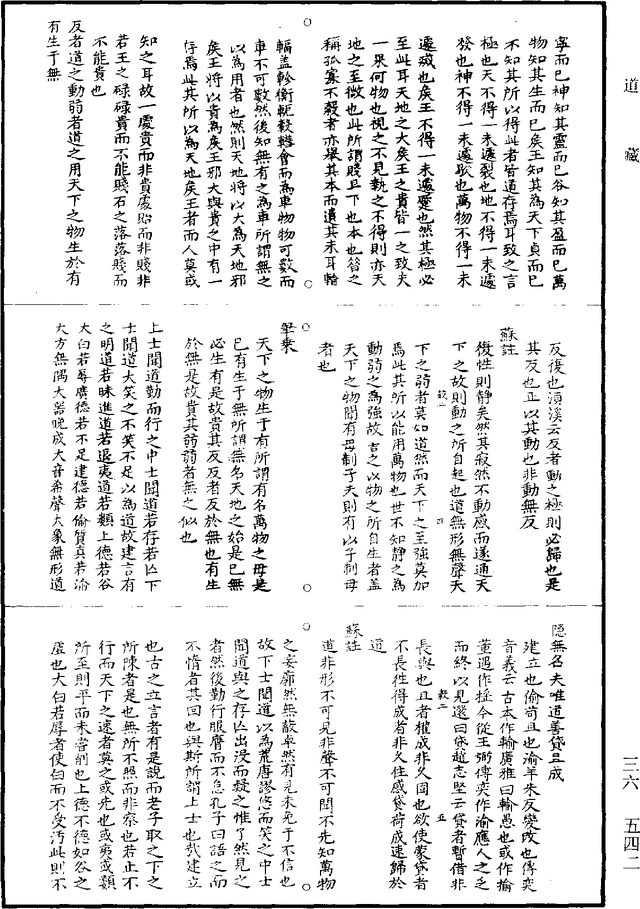 寧而已神知其靈而已谷知其盈而已萬
物知其生而已矣王知其為天下貞而已
不知其所以得此者皆道存焉耳致之言
極也天不得一未遽裂也地不得一未遽
發也神不得一未遽歇也萬物不得一未
遽滅也矦王不得一未遽蹷也然其極必
至此耳天地之大矦王之貴皆一之致夫
一果何物也視之不見執之不得則亦天
地之至微也此所謂賤且下也本也昝之
稱孤寡不穀者亦舉其本而遺其末耳輪
輻盖軫衡軛轂轊會而為車物物可數而
車不可數然後知無有之為車所謂無之
以為用者也然則天地將以大為天地邪
矦王將以貴為矦王邪大與貴之中有一
存焉此其所以為天地矦王者而人莫或
知之耳故一處貴而非貴處貽而非賤非
若王之碌碌貴而不能賤石之落落賤而
不能貴也
反者道之動弱者道之用天下之物生於有
有生于無
反復也濵溪云反者動之極則必歸也是
其反也正以其動也非動無反
蘇註
復性則靜矣然其寂然不動感而遂通天
下之故則動之所自起也道無形無聲天
下之弱者莫如道然而天下之至强莫加
焉此其所以能用萬物也世不知靜之為
動弱之為強故言之以物之所自生者盖
天下之物聞有母制子夫則有以子制母
者也
筆乗
天下之物生于有所謂有名萬物之母是
已有生于無所謂無名天地之始是已無
必生有是故貴其反反者友於無也有生
於無是故貴其弱弱者無之似也
上士聞道勤而行之中士聞道若存若亡下
士聞道大笑之不笑不足以為道故建言有
之明道若昧進道若退夷道若纇上德若谷
大白若辱廣德若不足建德若偷質真若渝
大方無隅大器晚成大音希聲大象無形道
隱無名夫唯道善貸且成
建立也偷苟且也渝羊朱反變改也傅奕
音義云古本作輸廣雅曰輸愚也或作揄
董遇作摇今從王弼傅奕作渝應人之乏
而終以見還曰貸趙志堅云貸者暫借非
長與也且者權成非久固也欲使蒙貸者
不長性得成者非久住感貸荷成速歸於
道
蘇註
道非形不可見非聲不可聞不先知萬物
之妄廓然無蔽卓然有見未免于不信也
故下士聞道以為荒唐謬悠而笑之中士
聞道與之存亡出没而疑之惟了然見之
者然後勤行服膺而不怠孔子曰語之而
不惰者其回也與斯所謂上士也哉建立
也古之立言者有是說而老子取之下之
所陳者是也無所不照而非察也若止不
行而天下之速者莫之或先也或夷或纇
所至則平而未嘗削也上德不德如谷之
虛也大白若辱者使白而不受汚此則不
道
藏
三六
五四二